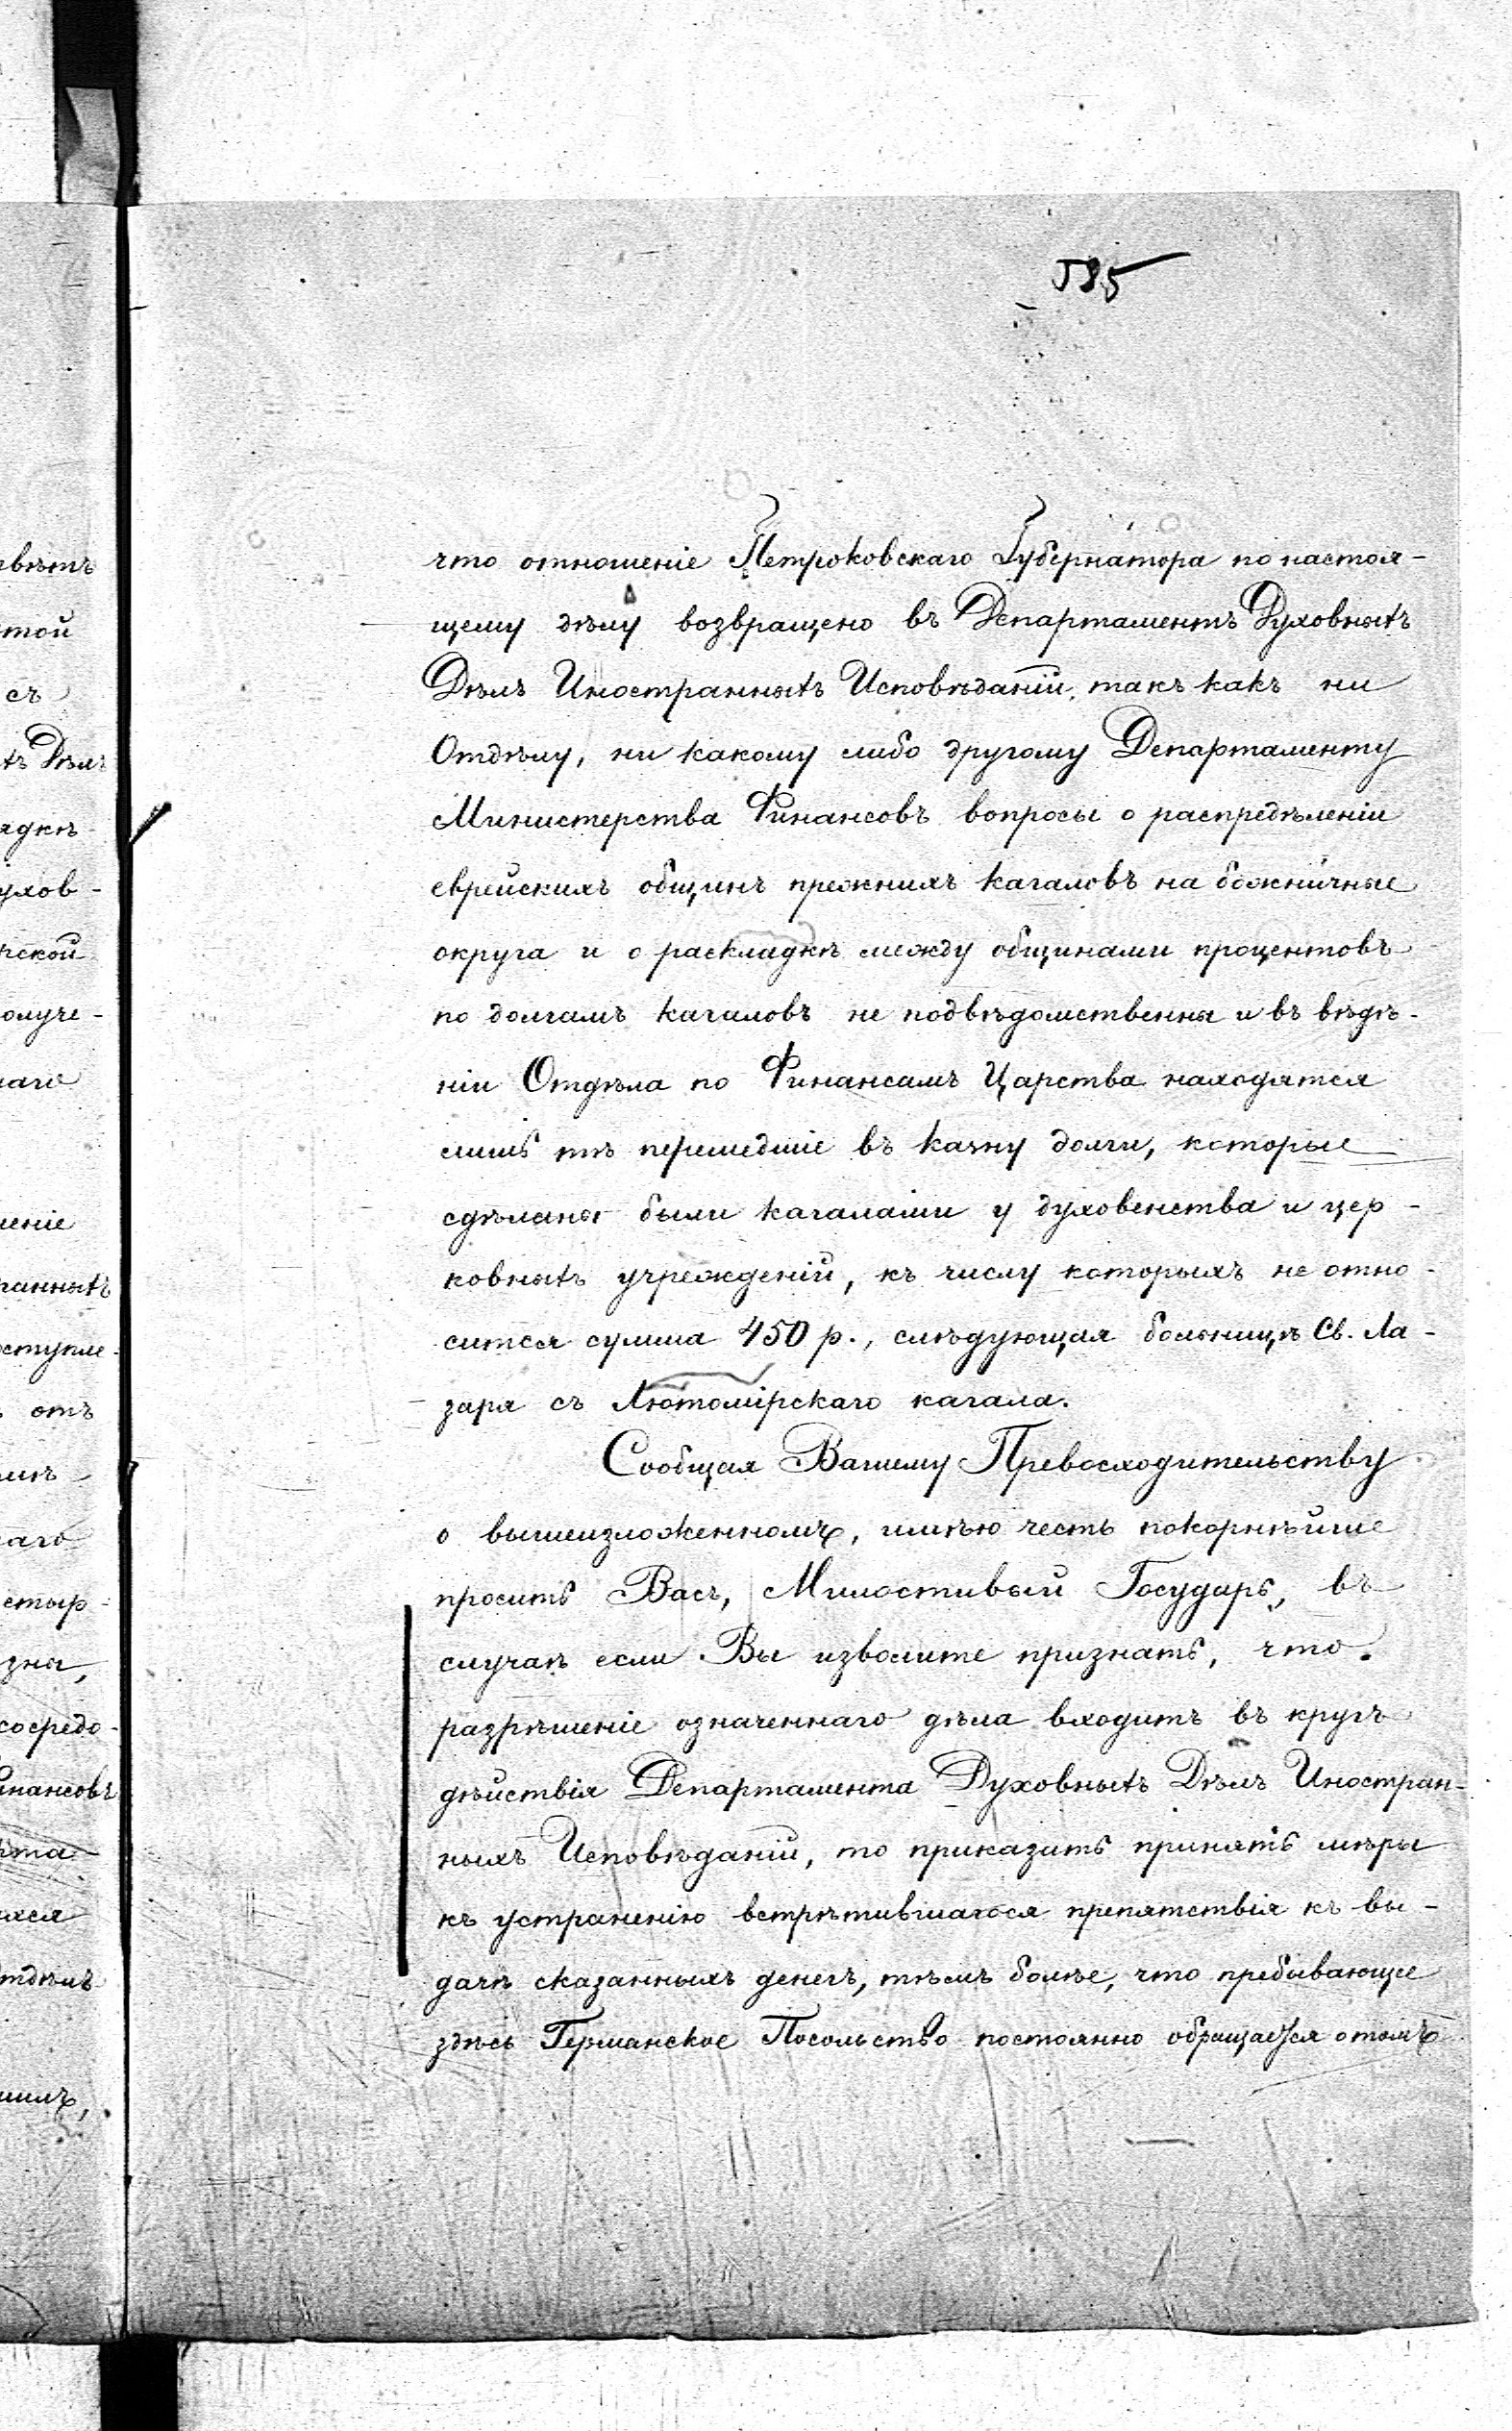 что отношеніе Петроковскаго Губернатора по настоя-
щему дѣлу возвращено въ Департаментъ Духовныхъ
Дѣлъ Иностранныхъ Исповѣданій, такъ какъ ни
Отдѣлу, ни какому либо другому Департаменту
Министерства Финансовъ вопросы о распредѣленіи
еврейскихъ общинъ прежнихъ кагаловъ на божничные
округа и о раскладкѣ между общинами процентовъ
по долгамъ кагаловъ не подвѣдомственны и въ вѣдѣ-
ніи Отдѣла по Финансамъ Царства находятся
лишь тѣ перешедшіе въ казну долги, которые
сдѣланы были кагалами у духовенства и цер-
ковныхъ учрежденій, къ числу которыхъ не отно-
сится сумма 450 р., слѣдующая больницѣ Св. Ла-
заря съ Лютомірскаго кагала.
Сообщая Вашему Превосходительству
о вышеизложенномъ, имѣю честь покорнѣйше
просить Васъ, Милостивый Государь, въ
случаѣ если Вы изволите признать, что
разрѣшеніе означеннаго дѣла входитъ въ кругъ
дѣйствія Департамента Духовныхъ Дѣлъ Иностран-
ныхъ Исповѣданій, то приказать принять мѣры
къ устраненію встрѣтившагося препятствія къ вы-
дачѣ сказанныхъ денегъ, тѣмъ болѣе, что пребывающее
здѣсь Германское Посольство постоянно обращается о томъ